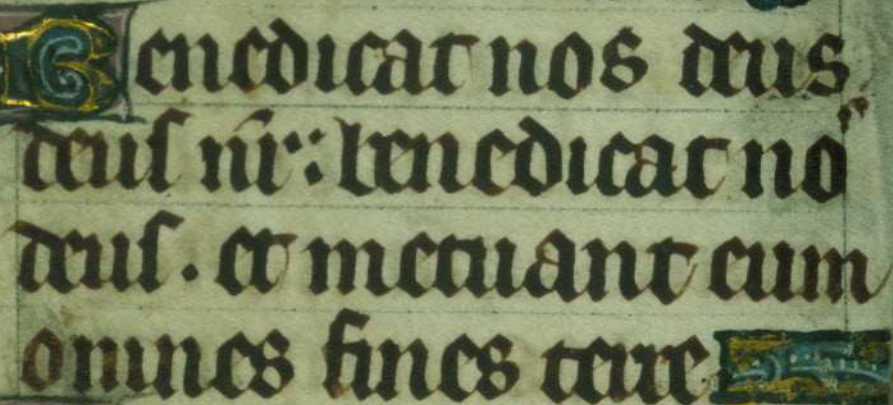 Benedicat nos deus
deus nr̄: benedicat nos
deus. et metuant eum
omnes fines terre